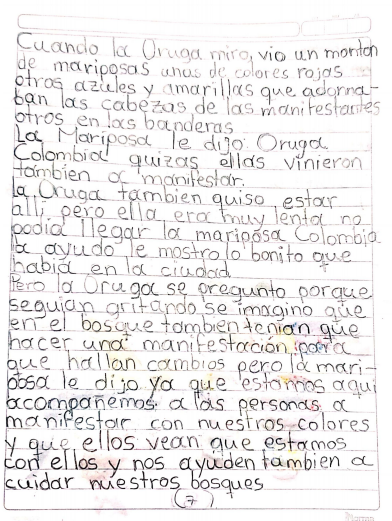 Cuando la Oruga miro, vio un monton
de mariposas unas de colores rojas
otros azules y amarillas que adorna-
ban las cabezas de las manifestantes
otros en las banderas
La Mariposa le dijo: Oruga
Colombia quizas ellas vinieron
tambien a manifestar.
la Oruga tambien quiso estar
alli, pero ella era muy lenta no
podia llegar la mariposa Colombia
la ayudo le mostro lo bonito que
habia en la ciudad
Pero la Oruga se pregunto porque
seguian gritando se imagino que
en el bosque tambien tenian que
hacer una manifestación para
que hallan cambios pero la mari-
posa le dijo ya que estamos aqui
acompañemos a las personas a
manifestar con nuestros colores
y que ellos vean que estamos
con ellos y nos ayuden tambien a
cuidar nuestros bosques
(7)